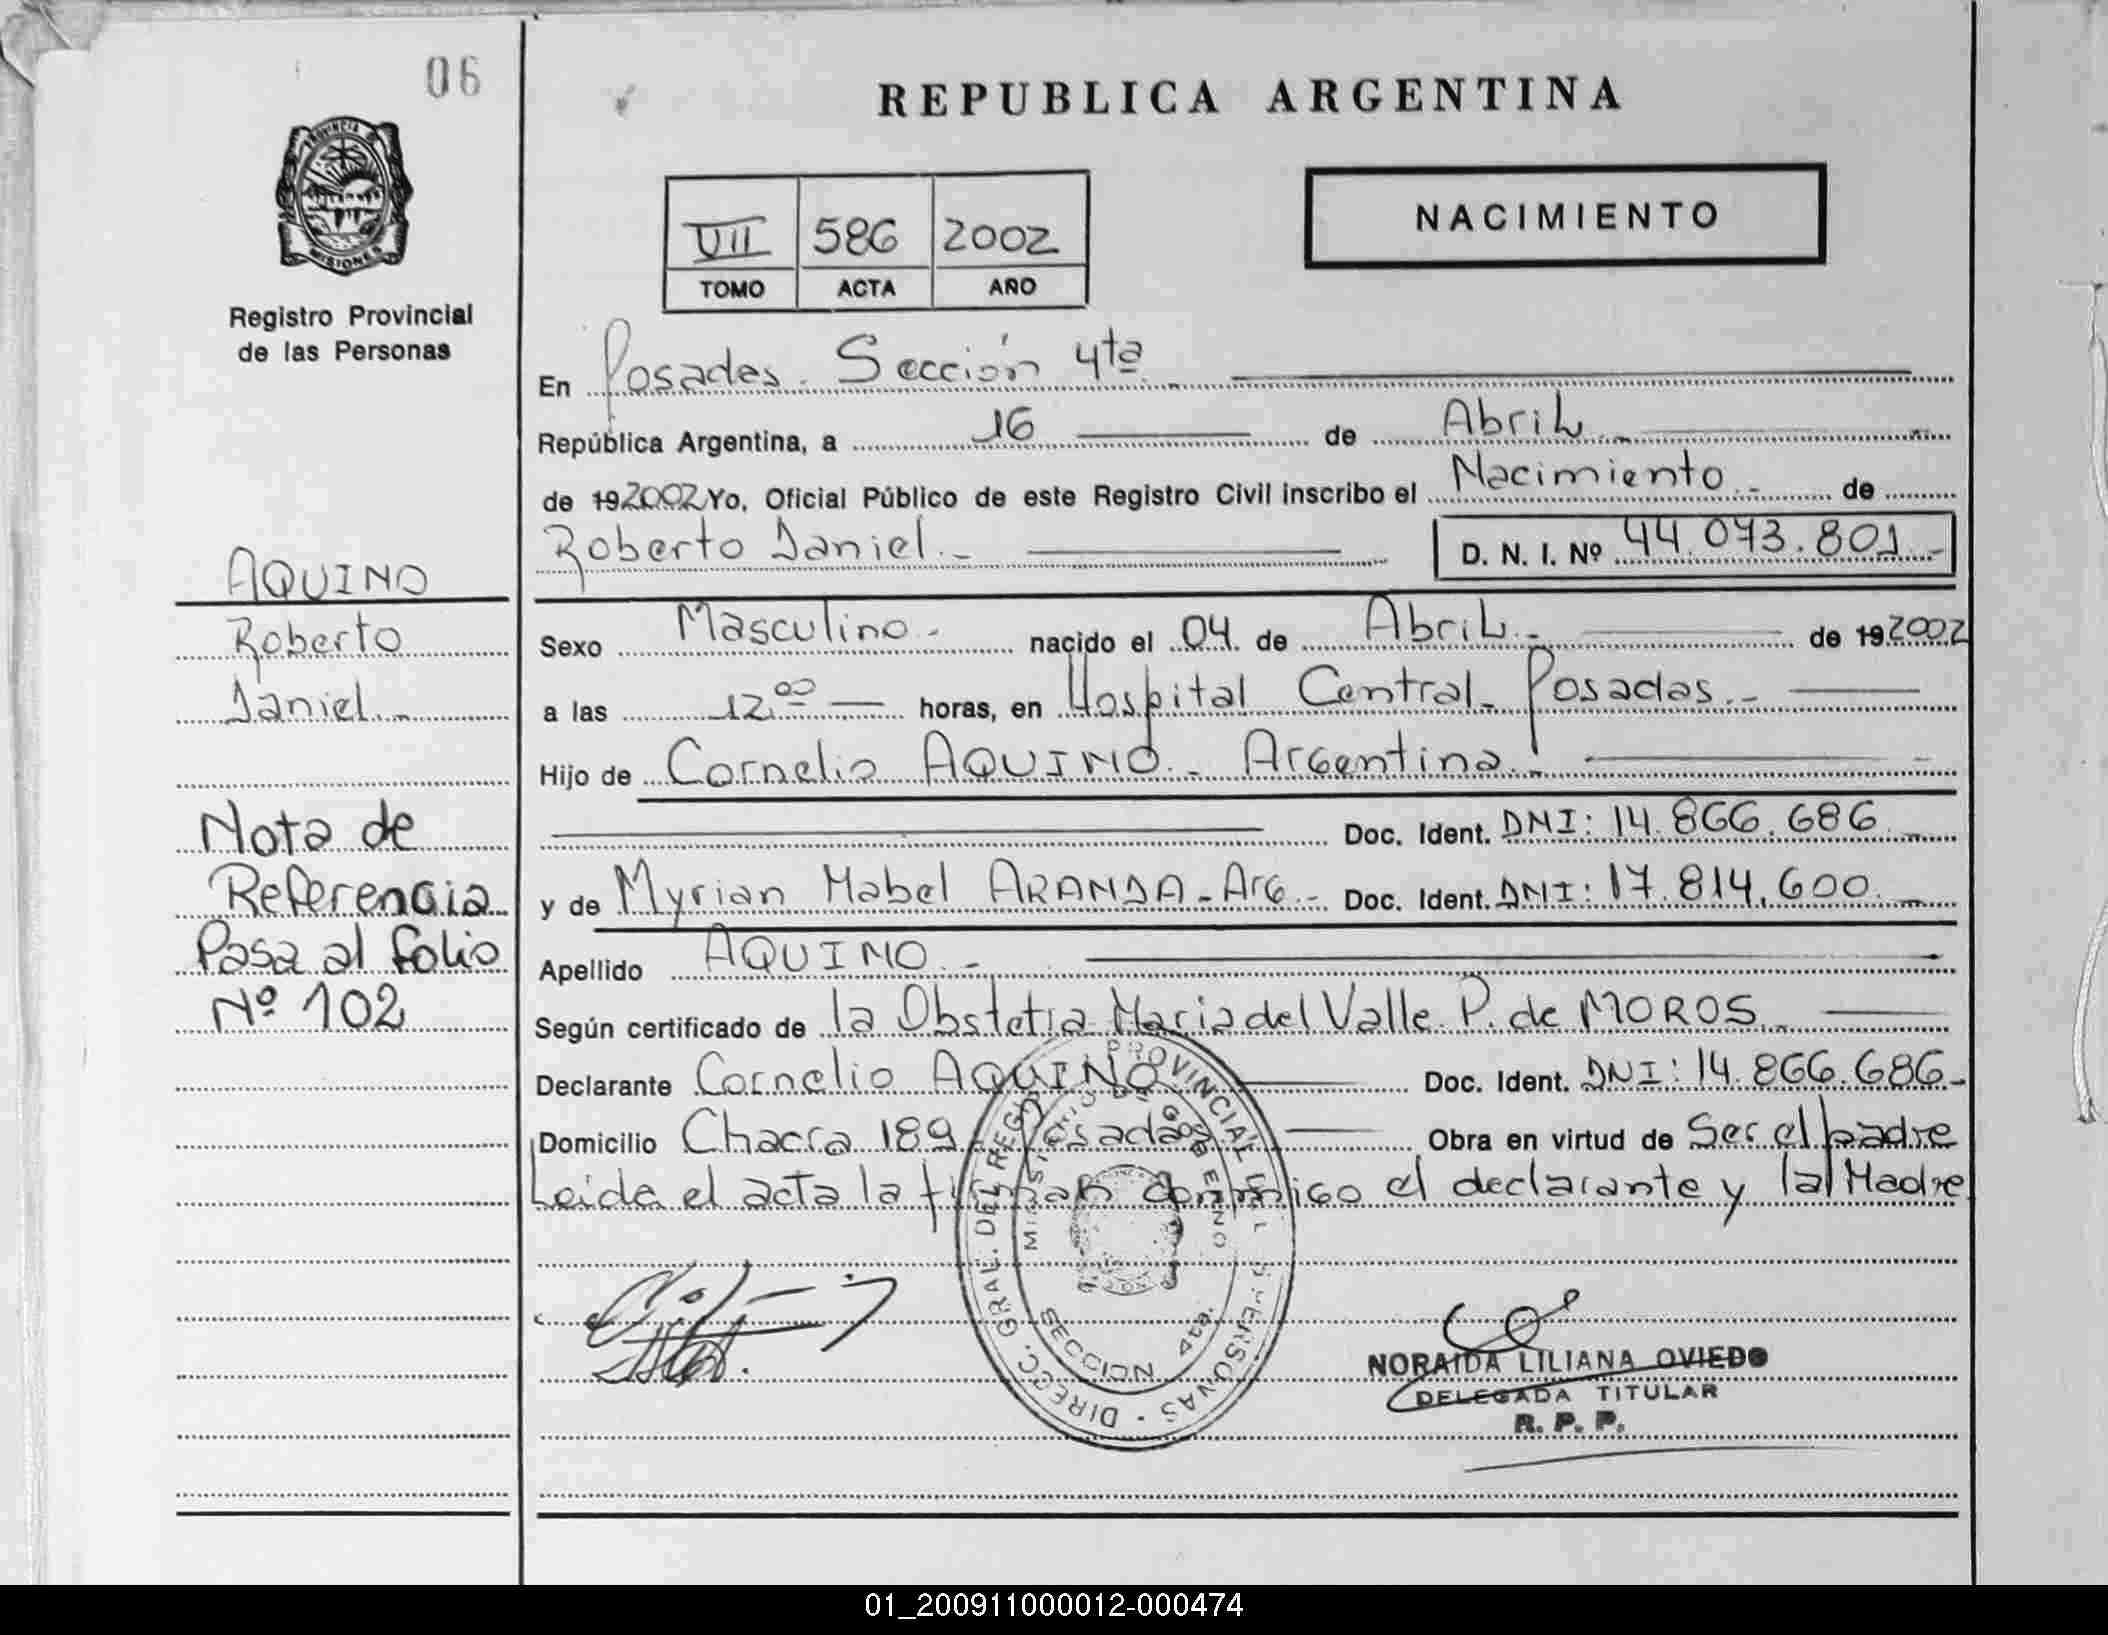 06
REPUBLICA ARGENTINA
PROVINCIA DE
MISIONES
Registro Provincial
de las Personas
VII 586 2002
TOMO ACTA AÑO
NACIMIENTO
En Posadas. Sección 4ta.
República Argentina, a 16 de Abril
de 192002 Yo, Oficial Público de este Registro Civil inscribo el Nacimiento.- de
Roberto Daniel.- D. N. I. Nº 44.073.801-
AQUINO
Roberto
Daniel.-
Sexo Masculino.- nacido el 04 de Abril.- de 192002
a las 12,00 horas, en Hospital Central- Posadas.-
Hijo de Cornelio AQUINO.- Argentino.-
Doc. Ident. DNI: 14.866.686.-
y de Myrian Mabel ARANDA-Arg.- Doc. Ident. DNI: 17.814.600.-
Apellido AQUINO.-
Según certificado de la Obstetra Maria del Valle P. de MOROS.-
Declarante Cornelio AQUINO Doc. Ident. DNI: 14.866.686-
Domicilio Chacra 189. Posadas Obra en virtud de Ser el padre
Leida el acta la firman conmigo el declarante y la Madre
Nota de
Referencia
Pasa al folio
Nº 102
DIRECC. GRAL. DEL REG. PROVINCIAL DE L S PERSONAS
MINISTERIO DE GOBIERNO
SECCION 4ta.
NORAIDA LILIANA OVIEDO
DELEGADA TITULAR
R. P. P.
01_200911000012-000474